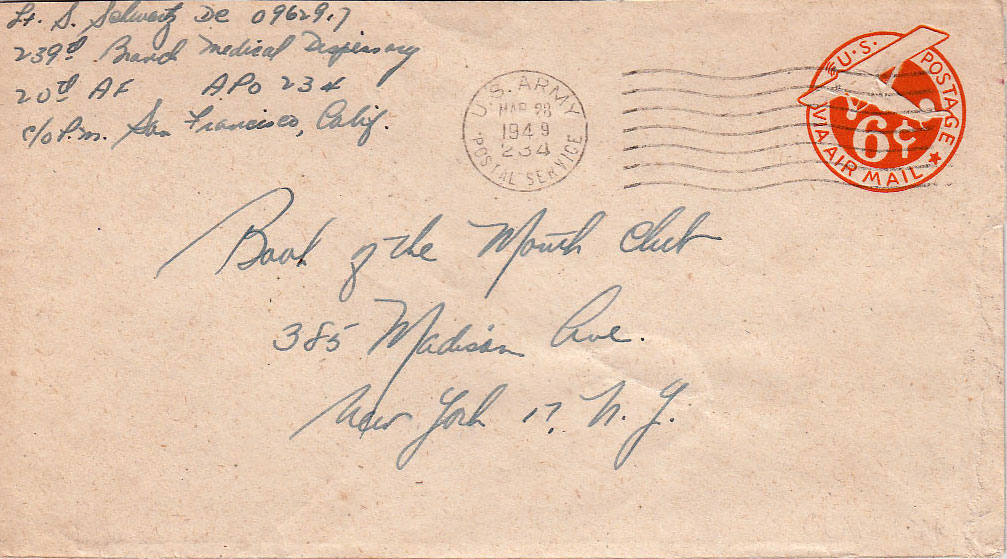 Lt. S. Schwartz DC 0962917
239th Branch Medical Dispensary
20th AF APO 234
c/o P.M. San Francisco, Calif.
U.S. ARMY
MAR 28
1949
234
POSTAL SERVICE
U.S. POSTAGE
6¢
VIA AIR MAIL
Book of the Month Club
385 Madison Ave.
New York 17, N.Y.